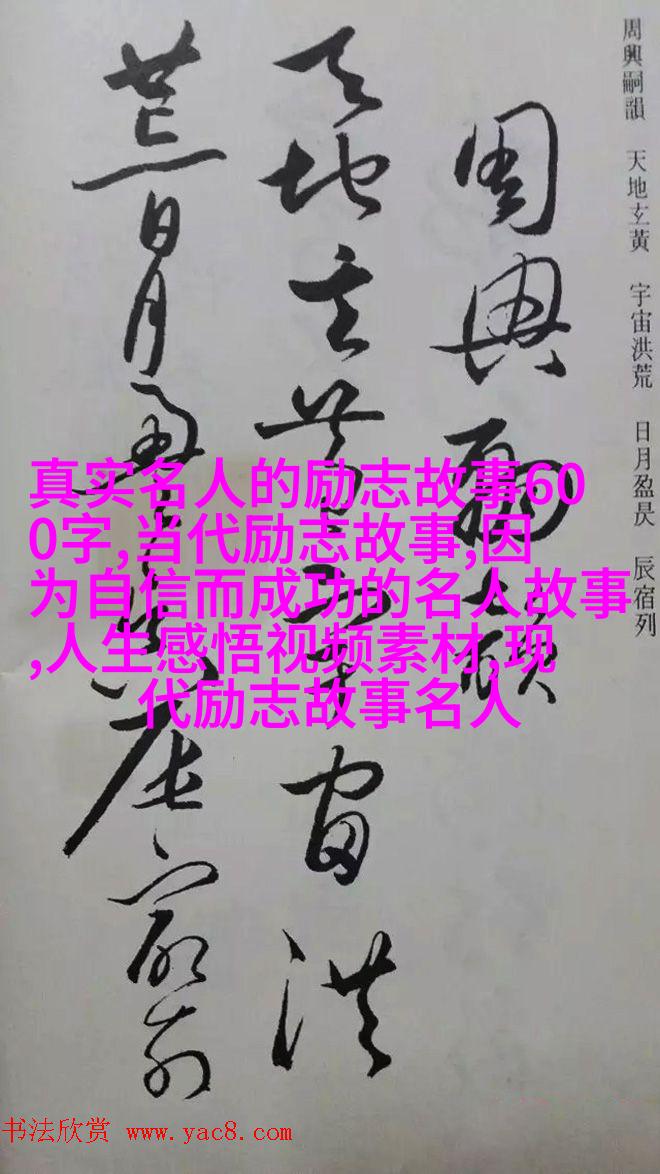 周興嗣韻 天地玄黃 宇宙洪荒 日月盈昃 辰宿列
周興嗣韻
天地玄黃宇宙洪
荒日月盈昃辰宿列
真实名人的励志故事60
0字,当代励志故事,因
为自信而成功的名人故事
,人生感悟视频素材,现
代励志故事名人
书法欣赏 www.yac8.com